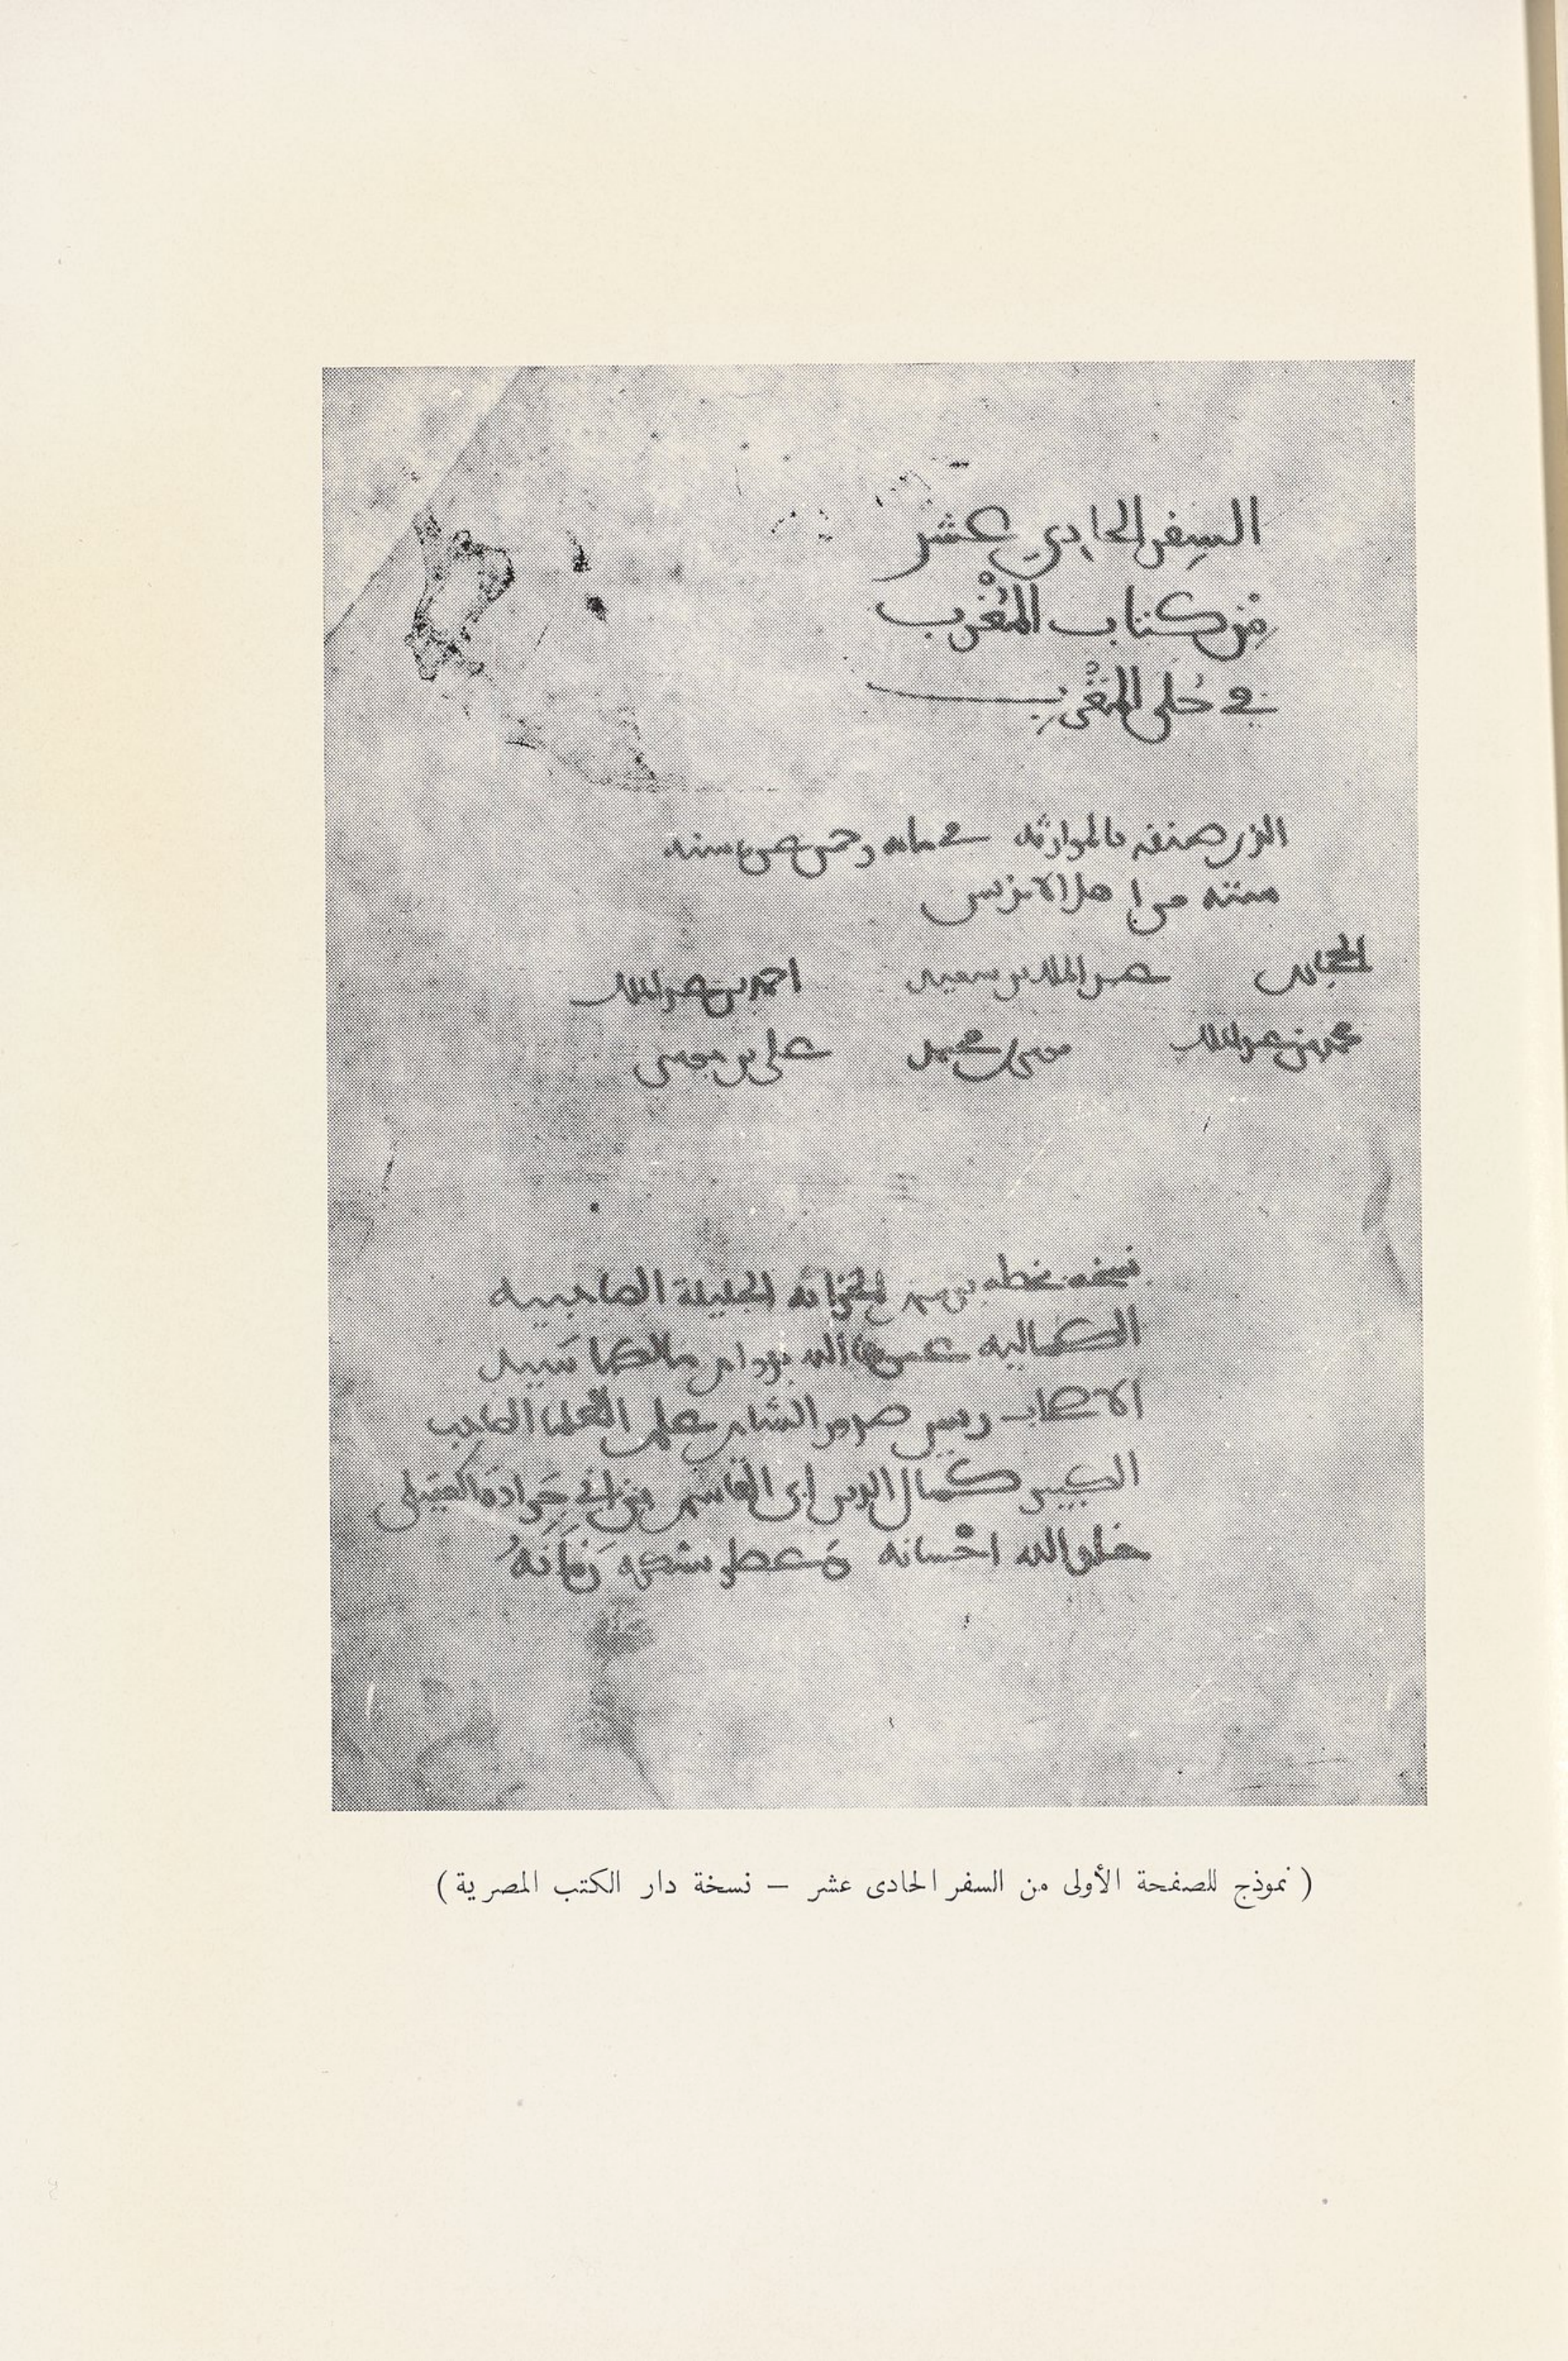 السفر الحادي عشر
من كتاب المُغْرِب
في حُلَى المَغْرِب
الذي صنفه بالموارثة في مائة وخمس عشرة سنة
ستة من اهل الاندلس
الحجاري عبد الملك بن سعيد احمد بن عبد الملك
محمد بن عبد الملك موسى بن محمد علي بن موسى
نسخه بخطه للخزانة الجليلة الصاحبية
الكمالية عمرها الله بدوام مالكها سيد
الاصحاب رييس صدور الشام علم العلما الصاحب
الكبير كمال الدين ابي القاسم بن ابي جَرادة العقيلي
خلد الله احْسانه وعطر بشكره زَمَانَهُ
( نموذج للصفحة الأولى من السفر الحادى عشر – نسخة دار الكتب المصرية )